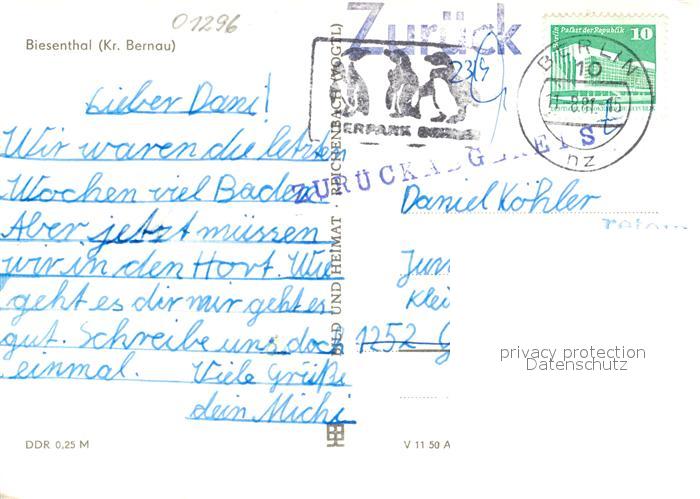 01296
Biesenthal (Kr. Bernau)
Lieber Dani!
Wir waren die letzten
Wochen viel Baden.
Aber jetzt müssen
wir in den Hort. Wie
geht es dir mir geht es
gut. Schreibe uns doch
einmal. Viele Grüße
dein Michi
DDR 0,25 M
BILD UND HEIMAT · REICHENBACH (VOGTL)
Zurück
23/9
BERLIN
10
81
15
nz
Berlin Palast der Republik
10
Daniel Köhler
retour
Jun
Klei
1252 G
privacy protection
Datenschutz
V 11 50 A